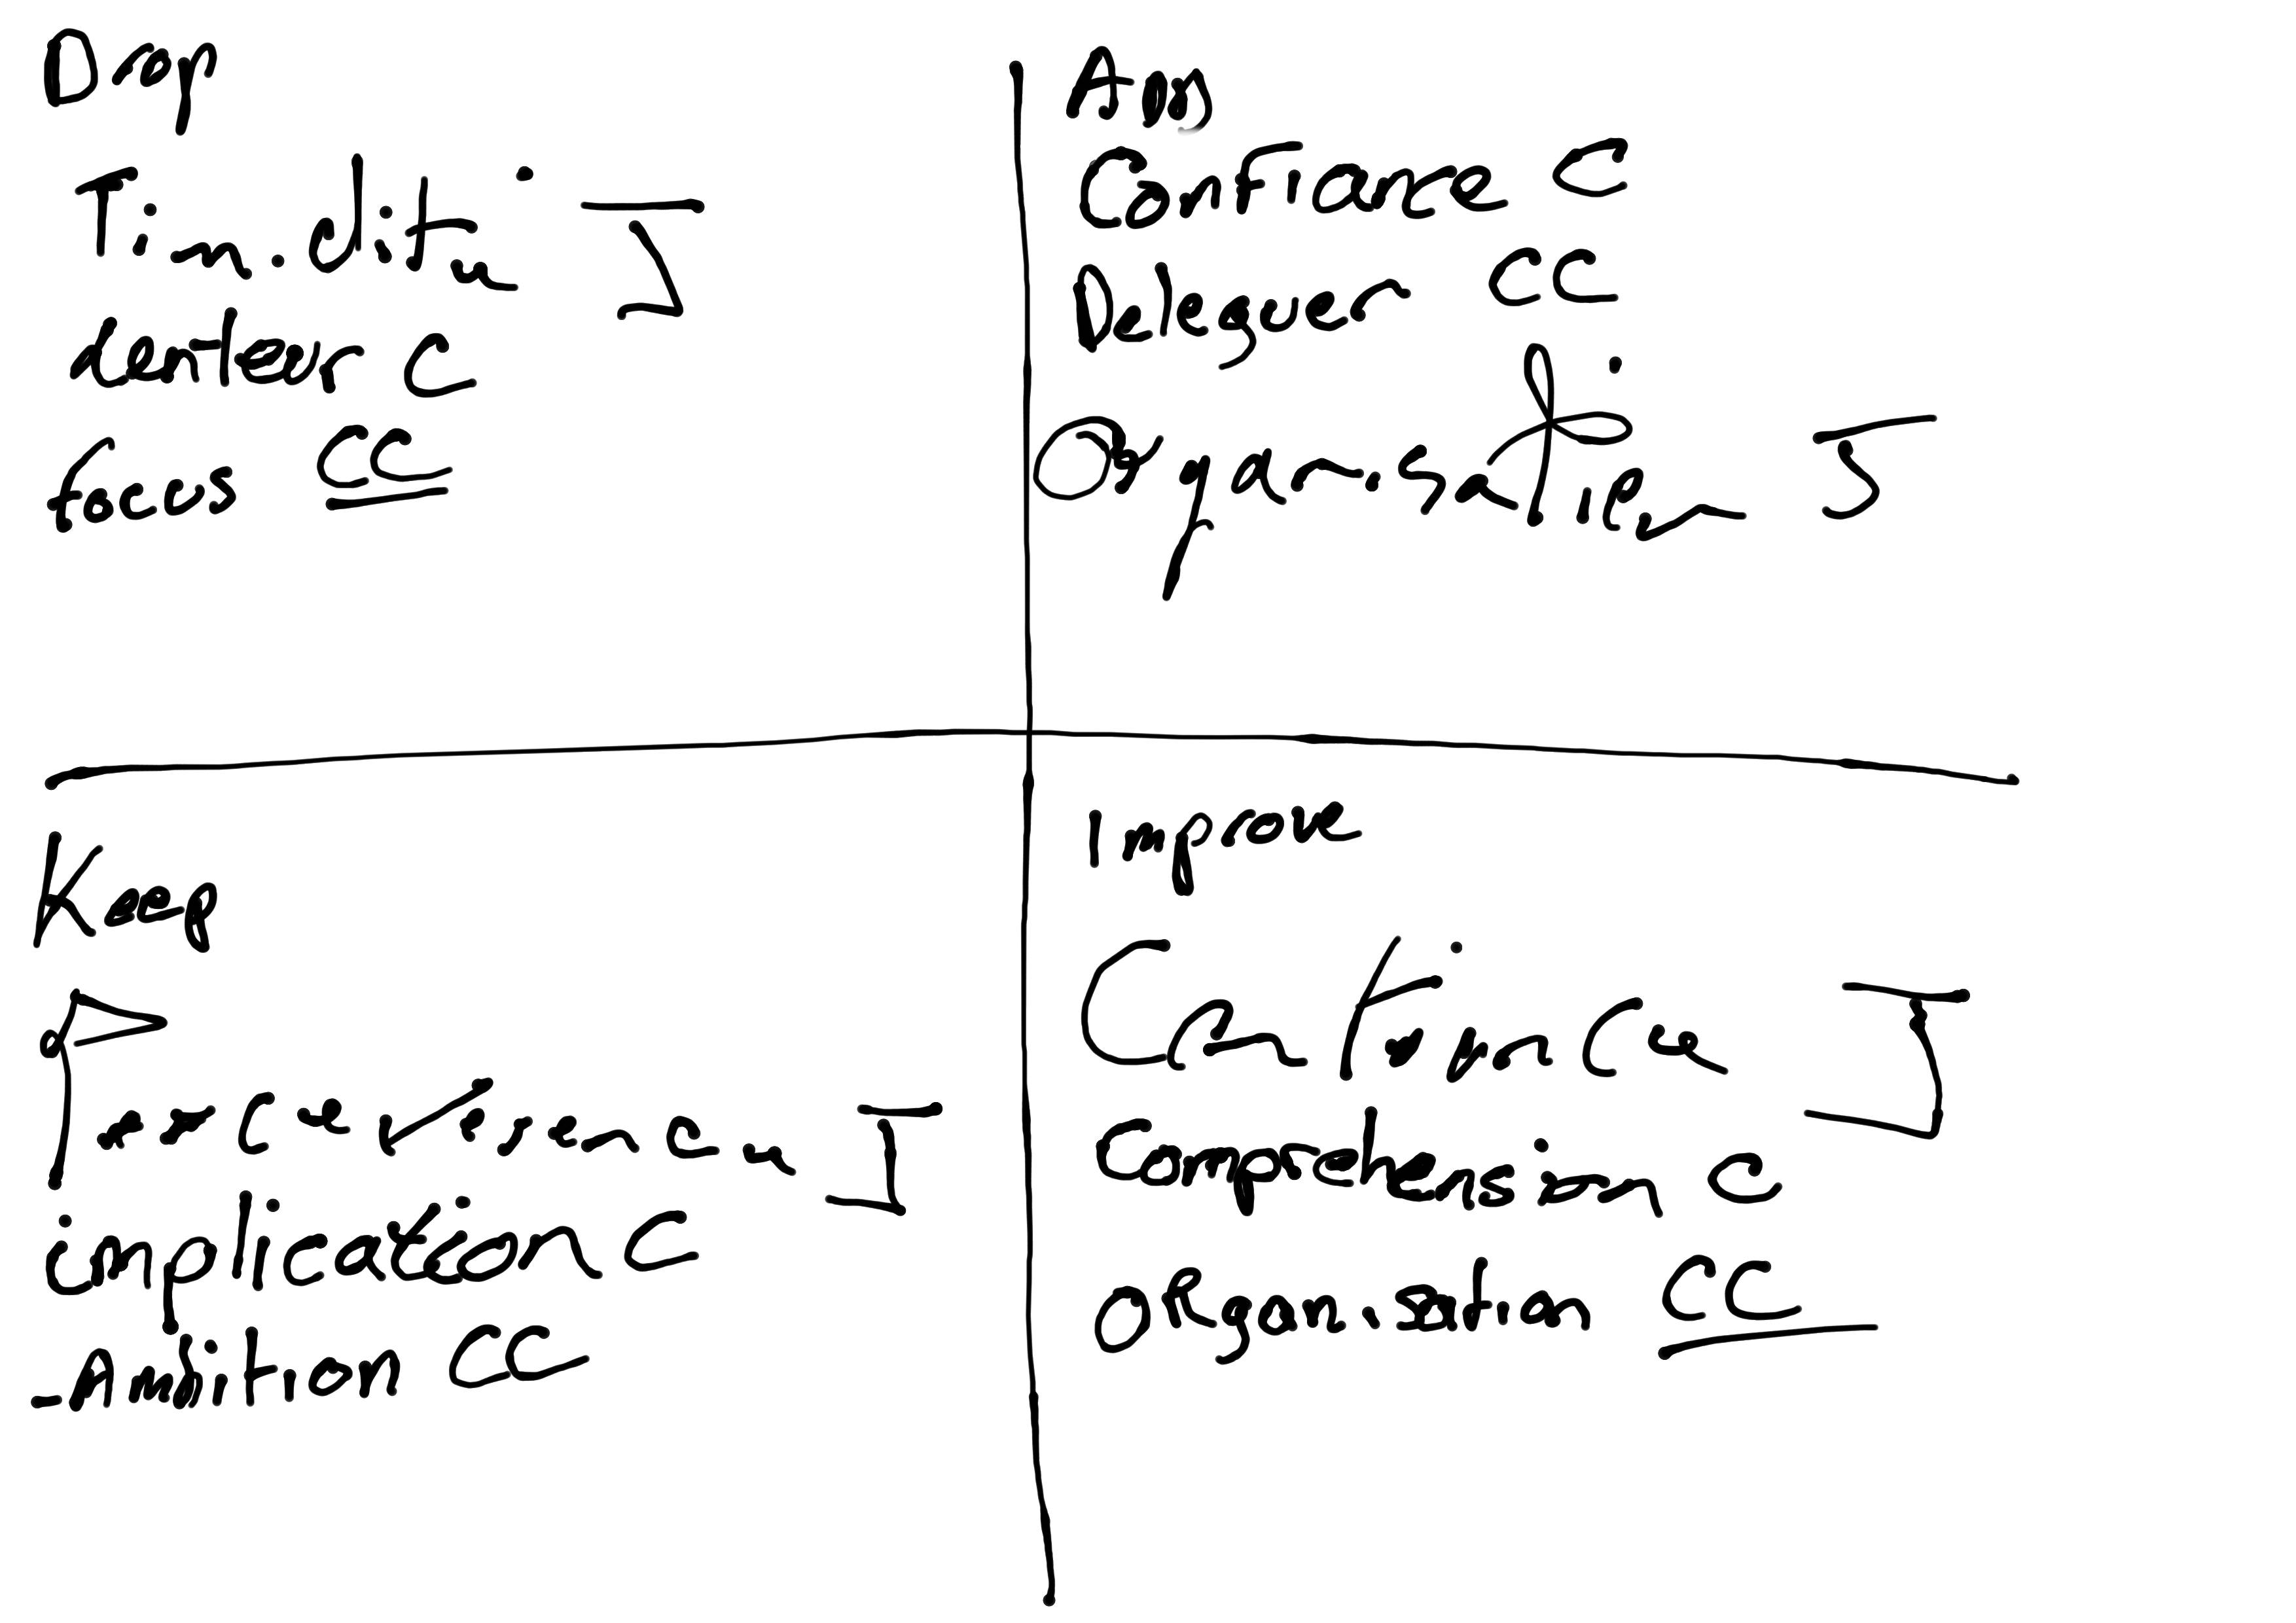 Drop
Timidité J
lenteur C
focus CC
Add
Confiance C
Deleguer CC
Organisation J
Keep
Perseverance J
implication C
-Ambition CC
Improve
Confiance J
Comprehension C
ORganisation CC